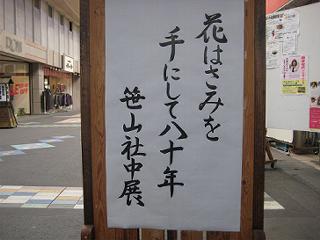 花はさみを
手にして八十年
笹山社中展